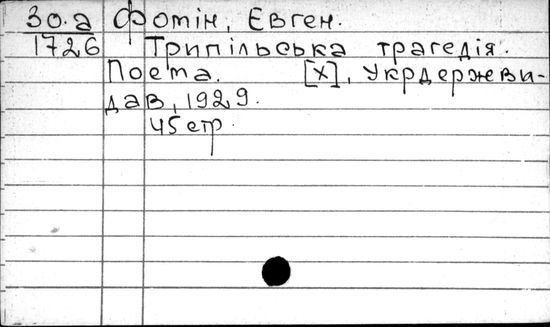 30.а Фомін, Євген.
1726 Трипільська трагедія.
Поема. [Х], Укрдержви-
дав, 1929.
45 стр.